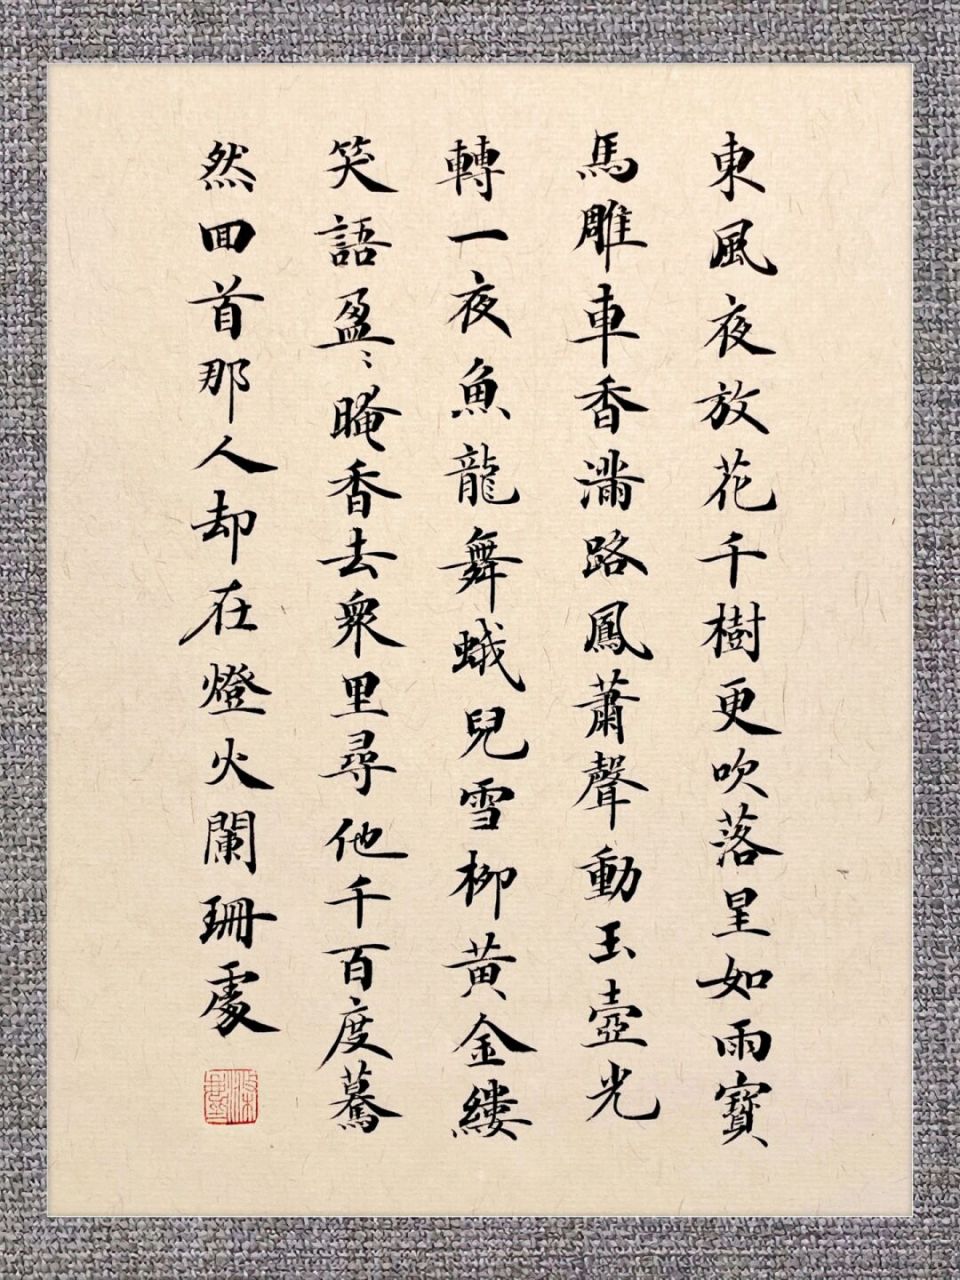 東風夜放花千樹更吹落星如雨寶
馬雕車香滿路鳳蕭聲動玉壺光
轉一夜魚龍舞蛾兒雪柳黃金縷
笑語盈〻晻香去衆里尋他千百度驀
然回首那人却在燈火闌珊處